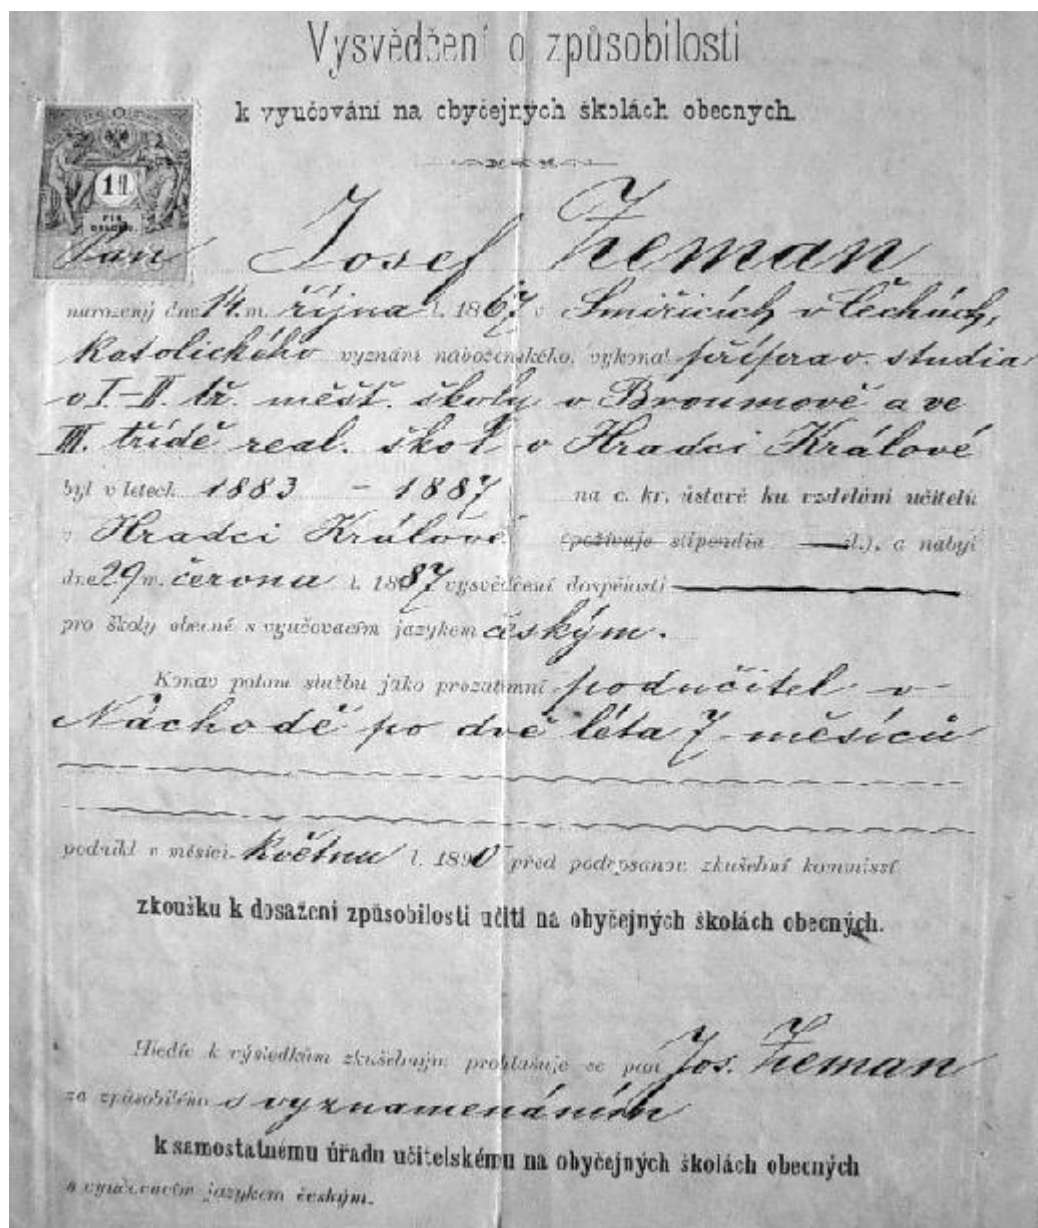 Vysvědčení o způsobilosti
k vyučování na obyčejných školách obecných.
1 fl.
Pan Josef Zeman
narozený dne 14. m. října l. 1867 v Smiřicích v Čechách,
katolického vyznání náboženského, vykonal příprav. studia
v I-II. tř. měšť. školy v Broumově a ve
III. třídě real. škol v Hradci Králové
byl v letech 1883 - 1887 na c. kr. ústavě ku vzdělání učitelů
v Hradci Králové (požívaje stipendia zl.), a nabyl
dne 29 m. června l. 1887 vysvědčení dospělosti
pro školy obecné s vyučovacím jazykem českým.
Konav potom službu jako prozatímní podučitel v
Náchodě po dvě léta 7 měsíců
podnikl v měsíci květnu l. 1890 před podepsanou zkušební kommissí
zkoušku k dosažení způsobilosti učiti na obyčejných školách obecných.
Hledíc k výsledkům zkušebným prohlašuje se pan Jos. Zeman
za způsobilého s vyznamenáním
k samostatnému úřadu učitelskému na obyčejných školách obecných
s vyučovacím jazykem českým.